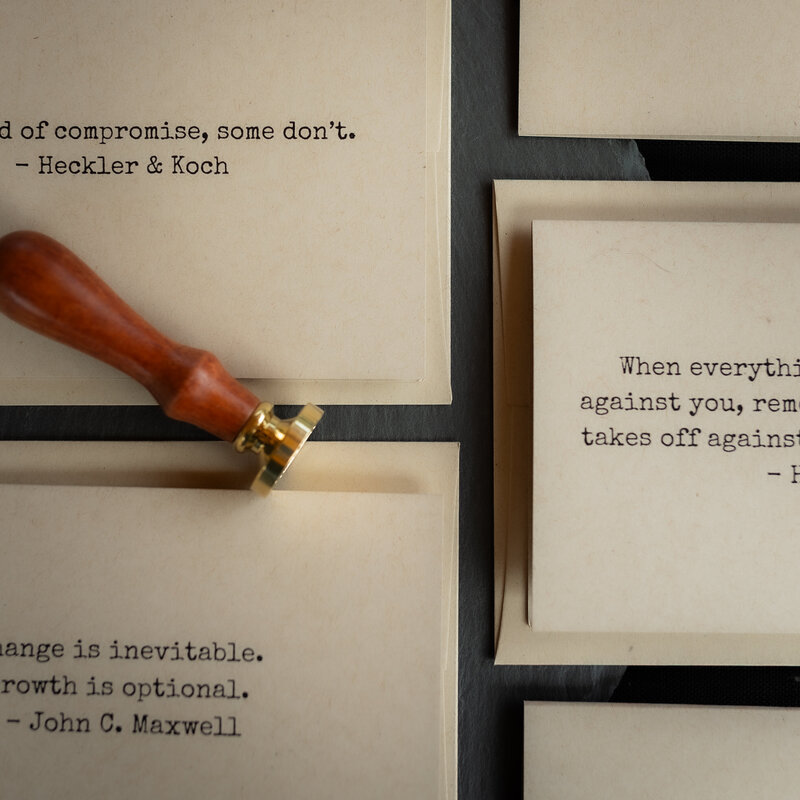 d of compromise, some don't.
– Heckler & Koch
When everythi
against you, reme
takes off against
– H
hange is inevitable.
rowth is optional.
– John C. Maxwell